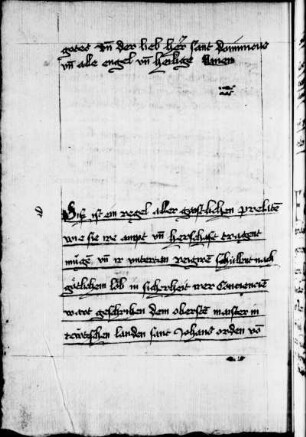 gotes vn̄ der lieb her sant Dominicus
vn̄ alle engel vn̄ heilige Amen
Diß ist ein regel aller geistlichen prelatē
wie sie ire ampt vn̄ herschaft tragent
mügē vn̄ ir untertan regirē schickent nach
götlichem lob in sicherheit irer Conciencie
wart geschriben dem obersten maister in
tewtschen landen sant Johans orden vō